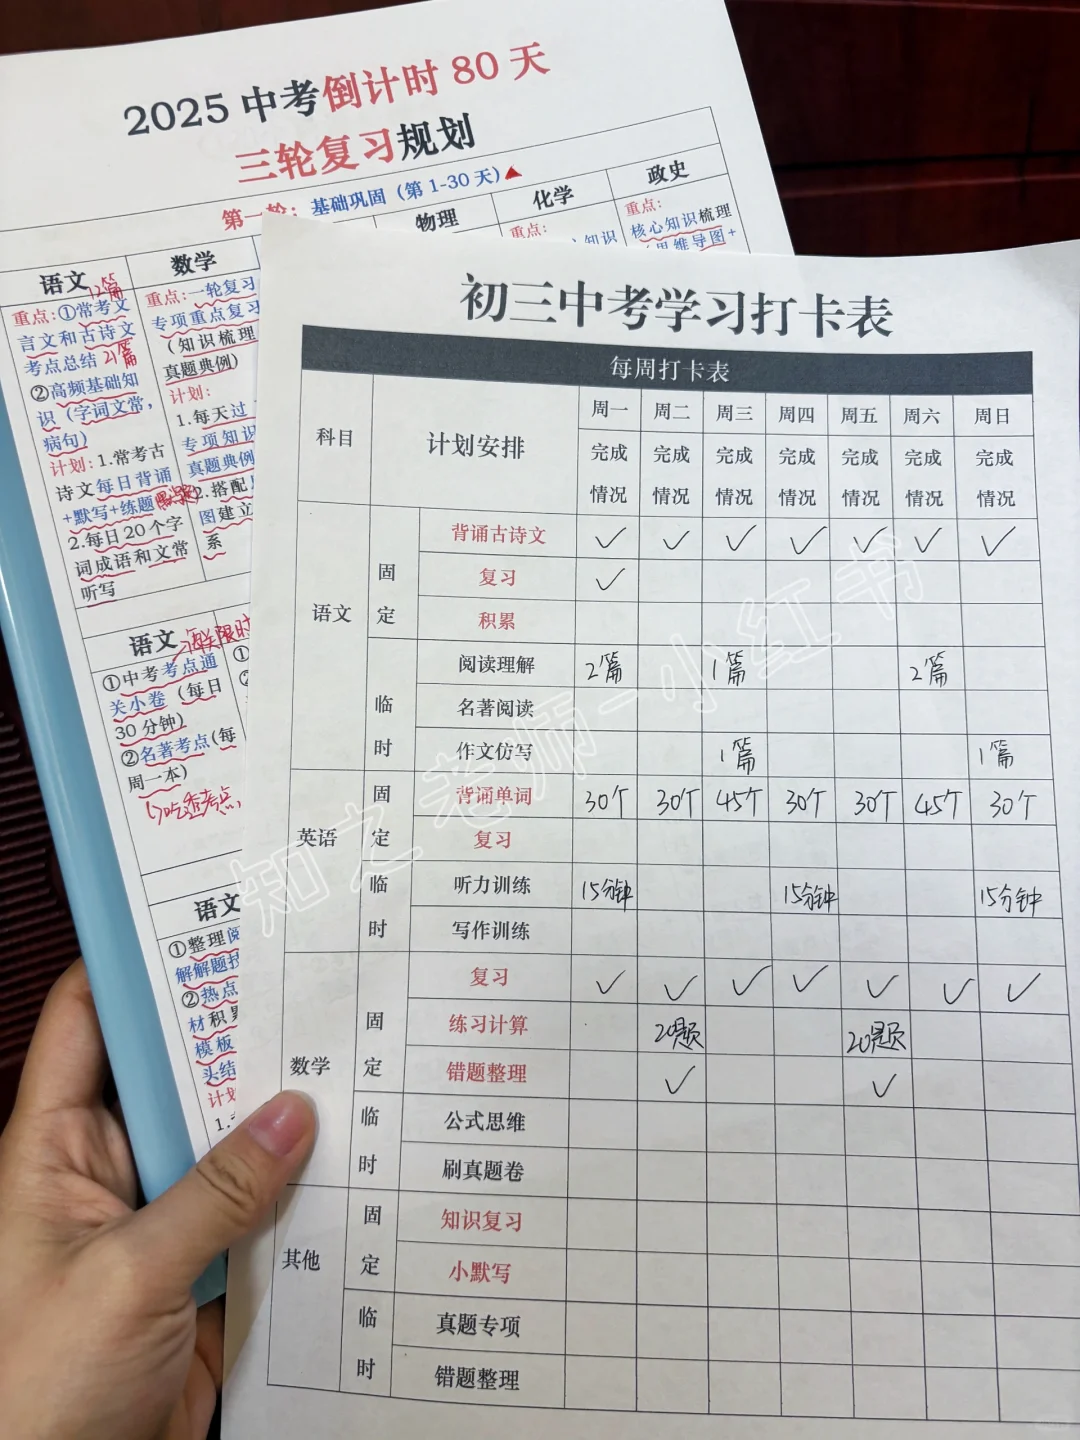 2025 中考倒计时 80 天
三轮复习规划
第一轮：基础巩固（第 1-30 天）
语文
数学
物理
化学
政史
12篇
重点：①常考文
言文和古诗文
考点总结 21篇
②高频基础知
识（字词文常，
病句）
计划：1.常考古
诗文每日背诵
+默写+练题
2.每日20个字
词成语和文常
听写
重点：一轮复习
专项重点复习
（知识梳理
真题典例）
计划：
1.每天过
专项知识
真题典例
2.搭配
图建立
系
重点：
知识
重点：
核心知识梳理
（思维导图+
语文
限时
①中考考点通
关小卷（每日
30分钟）
②名著考点（每
周一本）
吃透考点,
语文
①整理阅
解解题技
②热点
材积累
模板
头结
计划
1.
初三中考学习打卡表
每周打卡表
科目 计划安排 周一 周二 周三 周四 周五 周六 周日
完成 完成 完成 完成 完成 完成 完成
情况 情况 情况 情况 情况 情况 情况
语文 固定 背诵古诗文 ✓ ✓ ✓ ✓ ✓ ✓ ✓
复习 ✓
积累
临时 阅读理解 2篇 1篇 2篇
名著阅读
作文仿写 1篇 1篇
英语 固定 背诵单词 30个 30个 45个 30个 30个 45个 30个
复习
临时 听力训练 15分钟 15分钟 15分钟
写作训练
数学 固定 复习 ✓ ✓ ✓ ✓ ✓ ✓ ✓
练习计算 20题 20题
错题整理 ✓ ✓
临时 公式思维
刷真题卷
其他 固定 知识复习
小默写
临时 真题专项
错题整理
知之老师-小红书